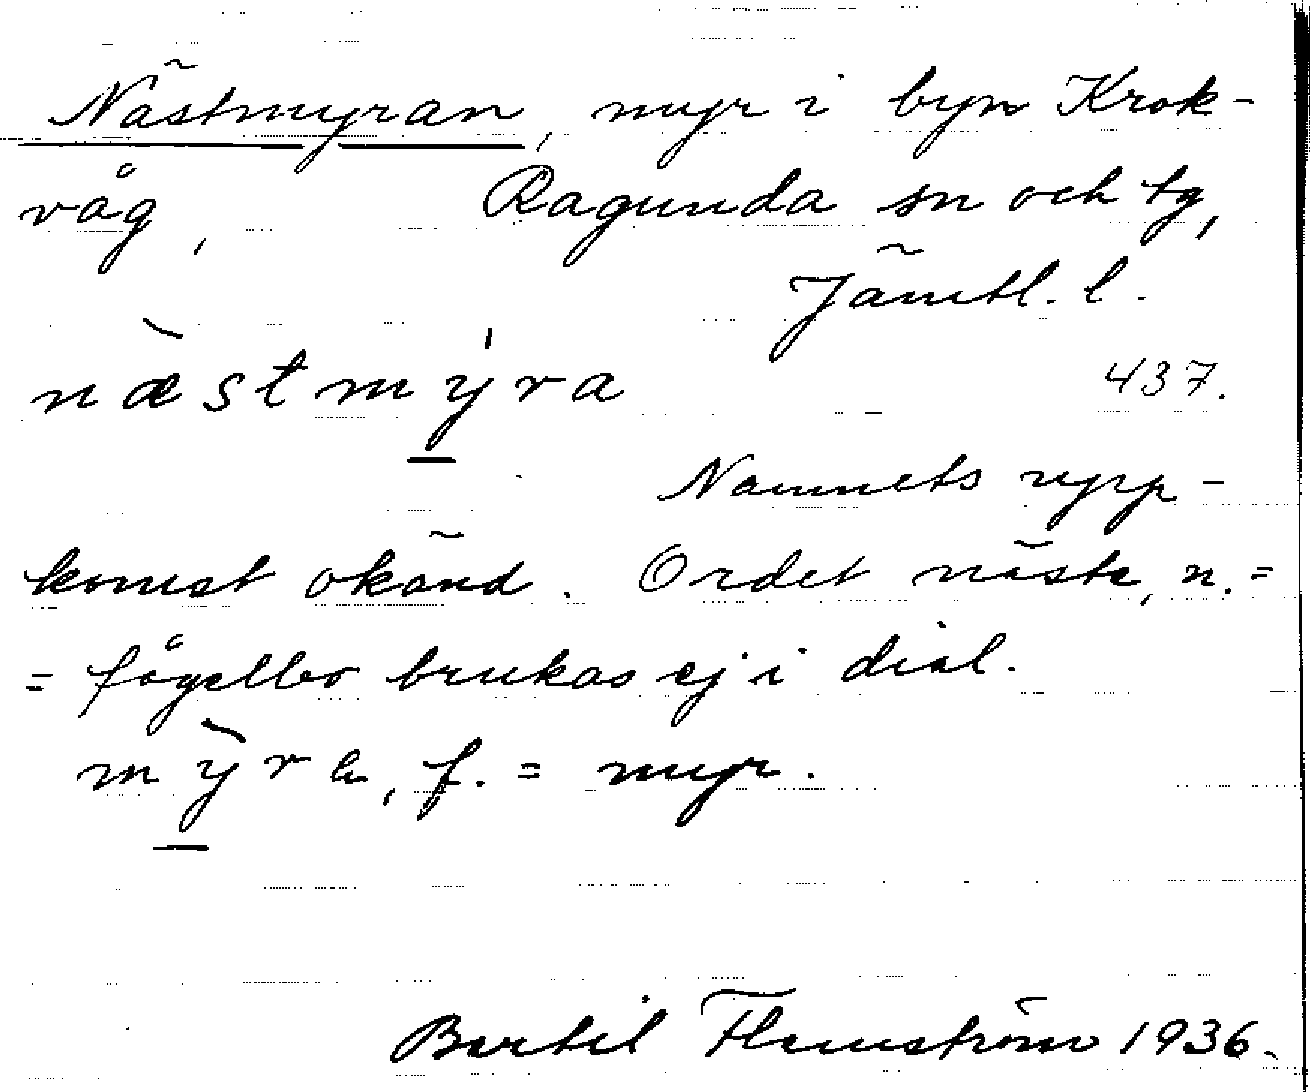 Nästmyran, myr i byn Krok-
våg, Ragunda sn och tg,
Jämtl. l.
næ̀stmý̲ra 437.
Namnets upp-
komst okänd. Ordet näste, n. =
= fågelbo brukas ej i dial.
mỳ̲ra, f. = myr.
Bertil Flemström 1936.